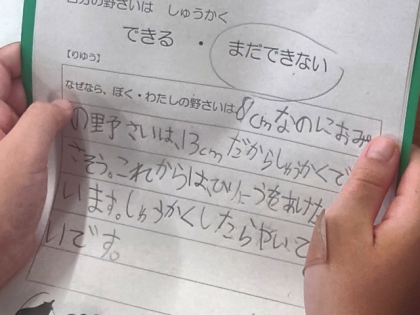 自分の野さいは しゅうかく
できる ・ まだできない
【りゆう】
なぜなら、ぼく・わたしの野さいは8cmなのにおみ
の野さいは、13cmだからしゅうかくで
さそう。これからは、ひりょうをあげた
います。しゅうかくしたらやいて
いです。